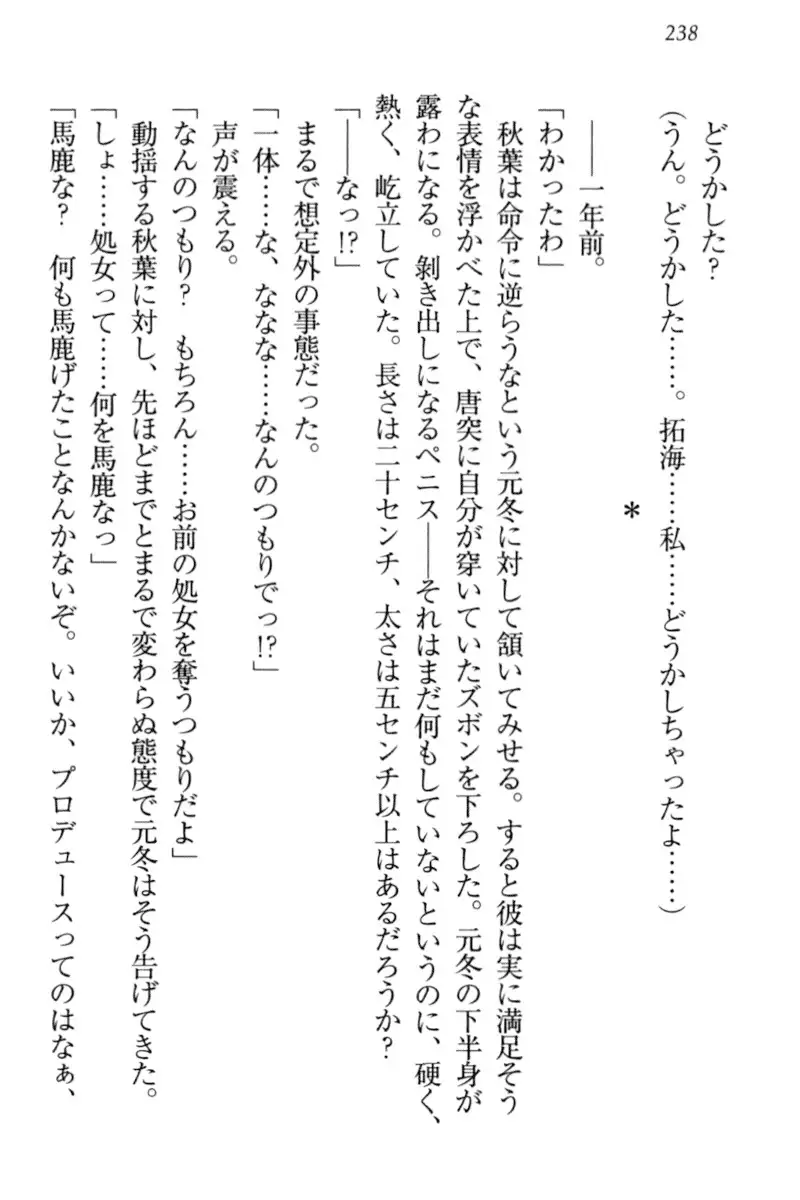 238
どうかした？
（うん。どうかした……。拓海……私……どうかしちゃったよ……）
＊
――一年前。
「わかったわ」
秋葉は命令に逆らうなという元冬に対して頷いてみせる。すると彼は実に満足そう
な表情を浮かべた上で、唐突に自分が穿いていたズボンを下ろした。元冬の下半身が
露わになる。剝き出しになるペニス――それはまだ何もしていないというのに、硬く、
熱く、屹立していた。長さは二十センチ、太さは五センチ以上はあるだろうか？
「――なっ!?」
まるで想定外の事態だった。
「一体……な、ななな……なんのつもりでっ!?」
声が震える。
「なんのつもり？　もちろん……お前の処女を奪うつもりだよ」
動揺する秋葉に対し、先ほどまでとまるで変わらぬ態度で元冬はそう告げてきた。
「しょ……処女って……何を馬鹿なっ」
「馬鹿な？　何も馬鹿げたことなんかないぞ。いいか、プロデュースってのはなぁ、